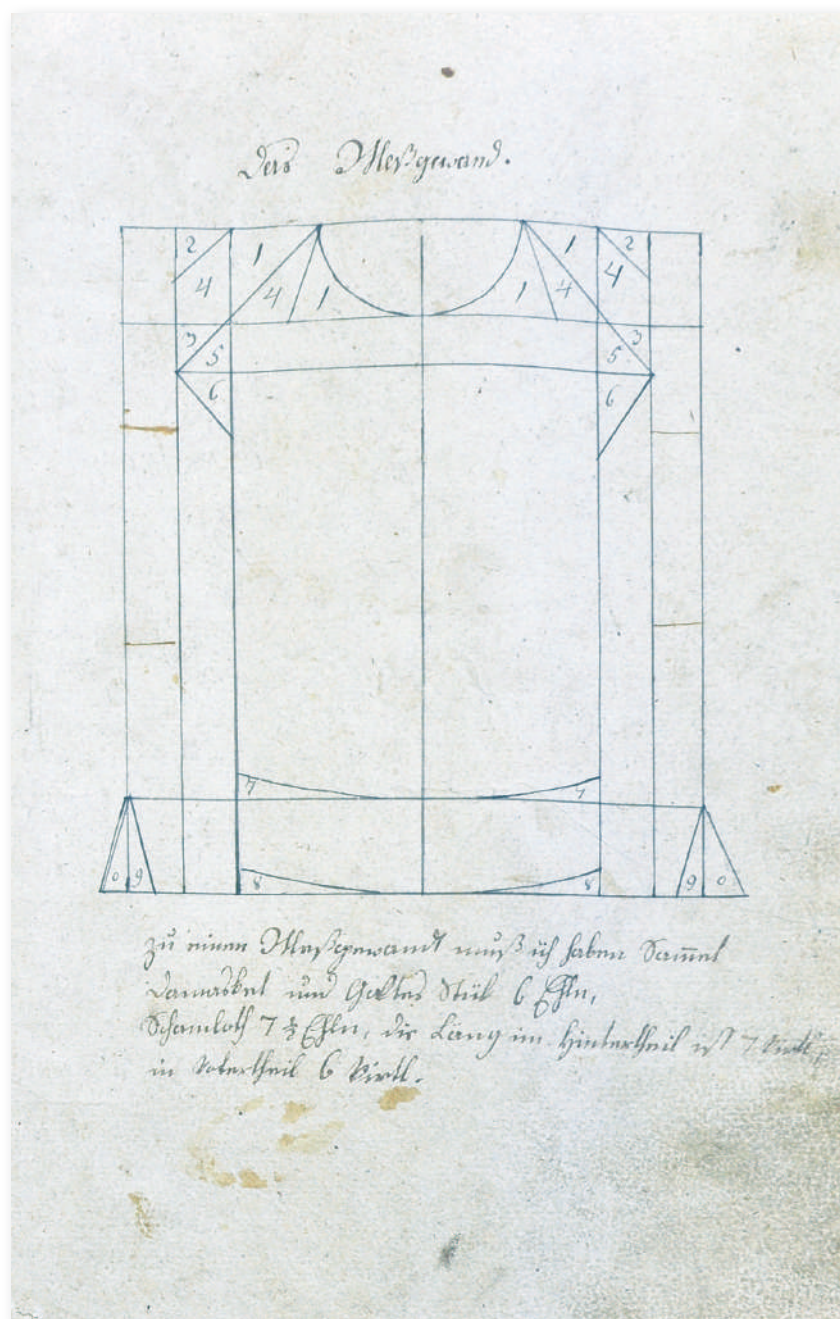 Das Meßgewand.
2 1 1 2
4 4 1 1 4 4
3 5 5 3
6 6
7 7
8 8
0 9 9 0
zu einen Meßgewandt muß ich haben Sammet
Damasket und Stük 6 Ehln,
Schamloth 7 Ehln, die Läng im Hintertheil ist 7 Virtl,
in Votertheil 6 Virtl.